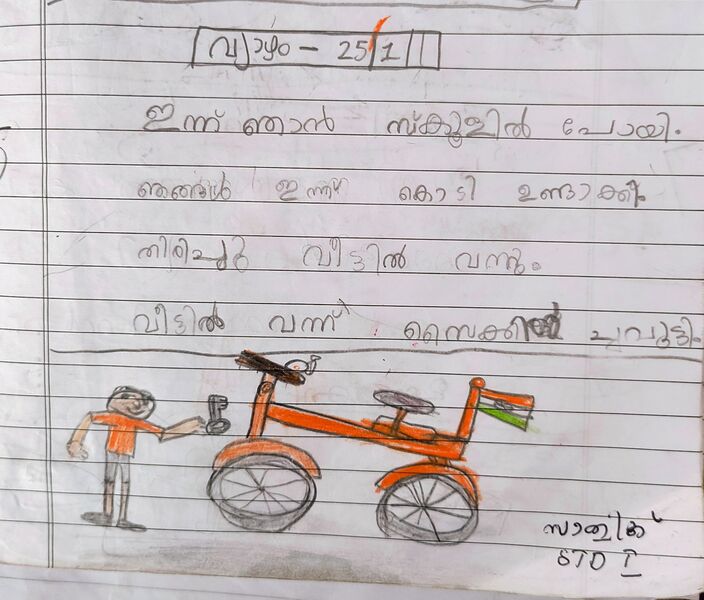 വ്യാഴം - 25/1
ഇന്ന് ഞാൻ സ്കൂളിൽ പോയി.
ഞങ്ങൾ ഇന്ന് കൊടി ഉണ്ടാക്കി.
തിരിച്ചു വീട്ടിൽ വന്നു.
വീട്ടിൽ വന്ന് സൈക്കിൾ ചവുട്ടി.
സാത്വിക്
STD I